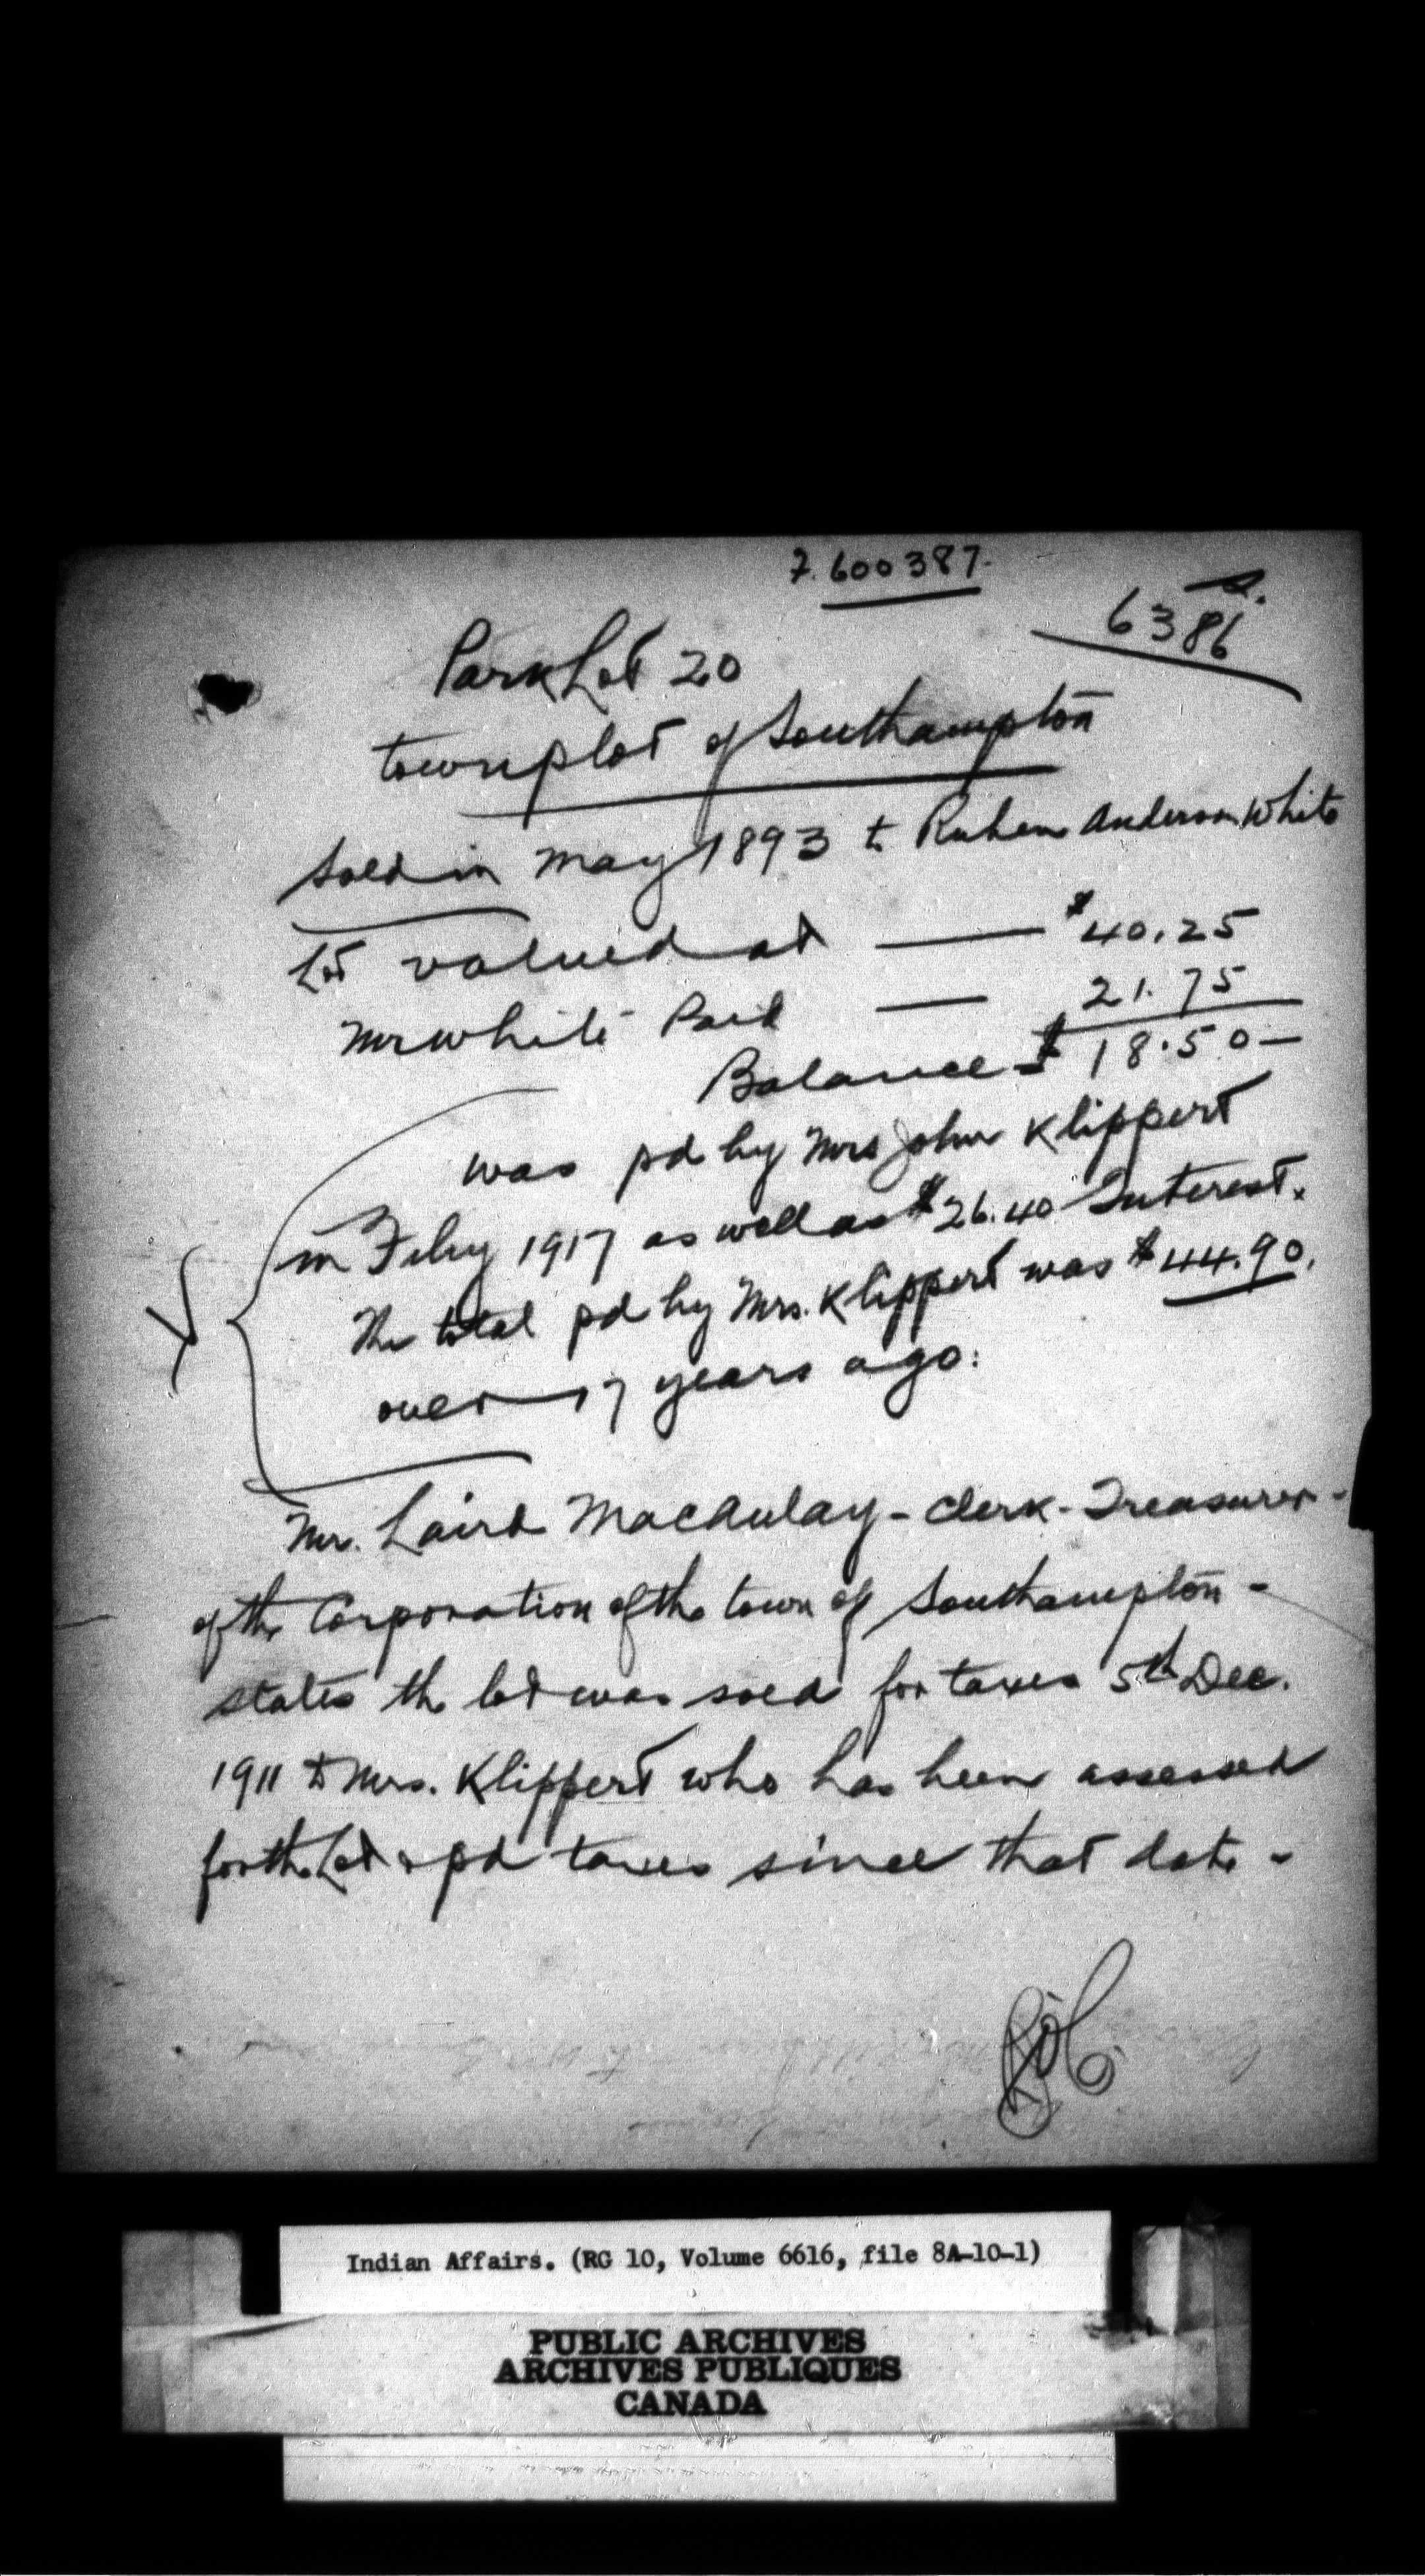 7.600387.
S.
6386
Park Lot 20
townplot of Southampton
Sold in May 1893 to Ruben Anderson White
Lot valued at — $40.25
Mr White Paid — 21.75
Balance $ 18.50 —
was pd by Mrs John Klippert
in Feby 1917 as well as $26.40 Interest.
The total pd by Mrs. Klippert was $44.90.
over 17 years ago.
Mr. Laird MacAulay - Clerk - Treasurer -
of the Corporation of the town of Southampton -
states the lot was sold for taxes 5th Dec.
1911 to Mrs. Klippert who has been assessed
for the Lot & pd taxes since that date -
Indian Affairs. (RG 10, Volume 6616, file 8A-10-1)
PUBLIC ARCHIVES
ARCHIVES PUBLIQUES
CANADA